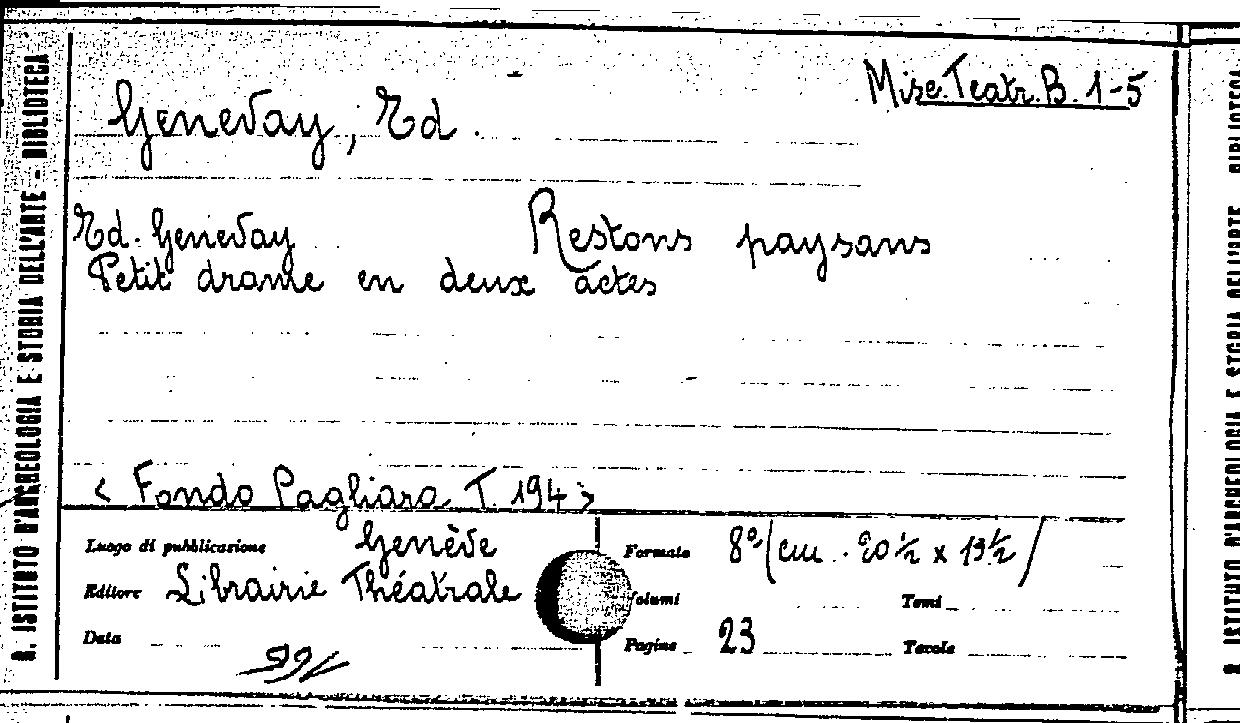 R. ISTITUTO D'ARCHEOLOGIA E STORIA DELL'ARTE - BIBLIOTECA
Misc. Teatr. B. 1-5
Genevay, Ed.
Ed. Genevay Restons paysans
Petit drame en deux actes
< Fondo Pagliara T. 194 >
Luogo di pubblicazione Genève
Editore Librairie Théatrale
Data
Formato 8º (cm. 20 ½ x 13 ½)
Volumi Tomi
Pagine 23 Tavole